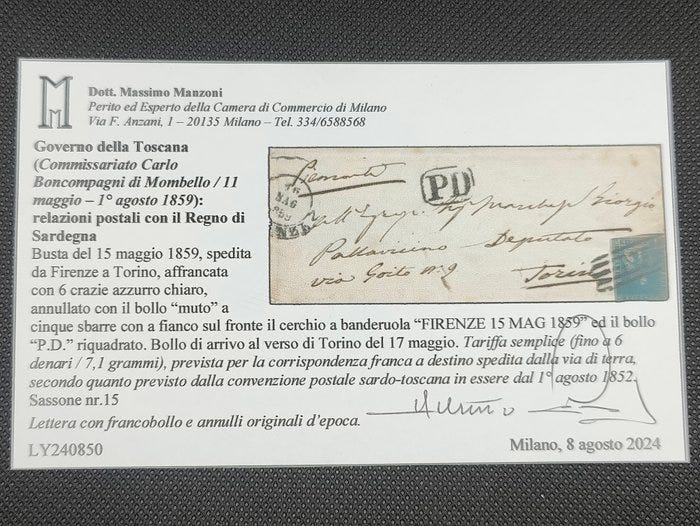 Dott. Massimo Manzoni
Perito ed Esperto della Camera di Commercio di Milano
Via F. Anzani, 1 – 20135 Milano – Tel. 334/6588568
Governo della Toscana
(Commissariato Carlo
Boncompagni di Mombello / 11
maggio – 1° agosto 1859):
relazioni postali con il Regno di
Sardegna
Busta del 15 maggio 1859, spedita
da Firenze a Torino, affrancata
con 6 crazie azzurro chiaro,
annullato con il bollo “muto” a
cinque sbarre con a fianco sul fronte il cerchio a banderuola “FIRENZE 15 MAG 1859” ed il bollo
“P.D.” riquadrato. Bollo di arrivo al verso di Torino del 17 maggio. Tariffa semplice (fino a 6
denari / 7,1 grammi), prevista per la corrispondenza franca a destino spedita dalla via di terra,
secondo quanto previsto dalla convenzione postale sardo-toscana in essere dal 1° agosto 1852.
Sassone nr.15
Lettera con francobollo e annulli originali d’epoca.
LY240850
Milano, 8 agosto 2024
Piemonte
PD
MAG
Giorgio
Pallavicino Deputato
via Goito nº 9 Torino